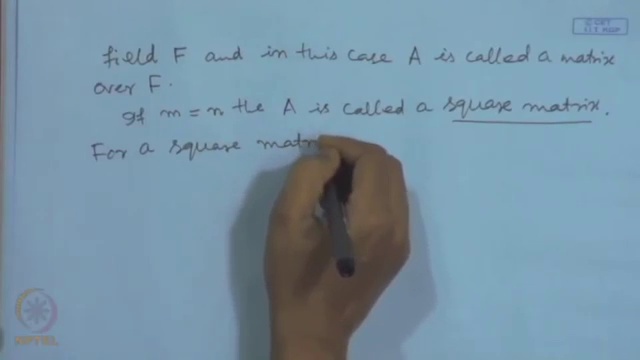 © CET
I.I.T. KGP
field F and in this case A is called a matrix
over F.
If m = n the A is called a square matrix.
For a square matr
NPTEL